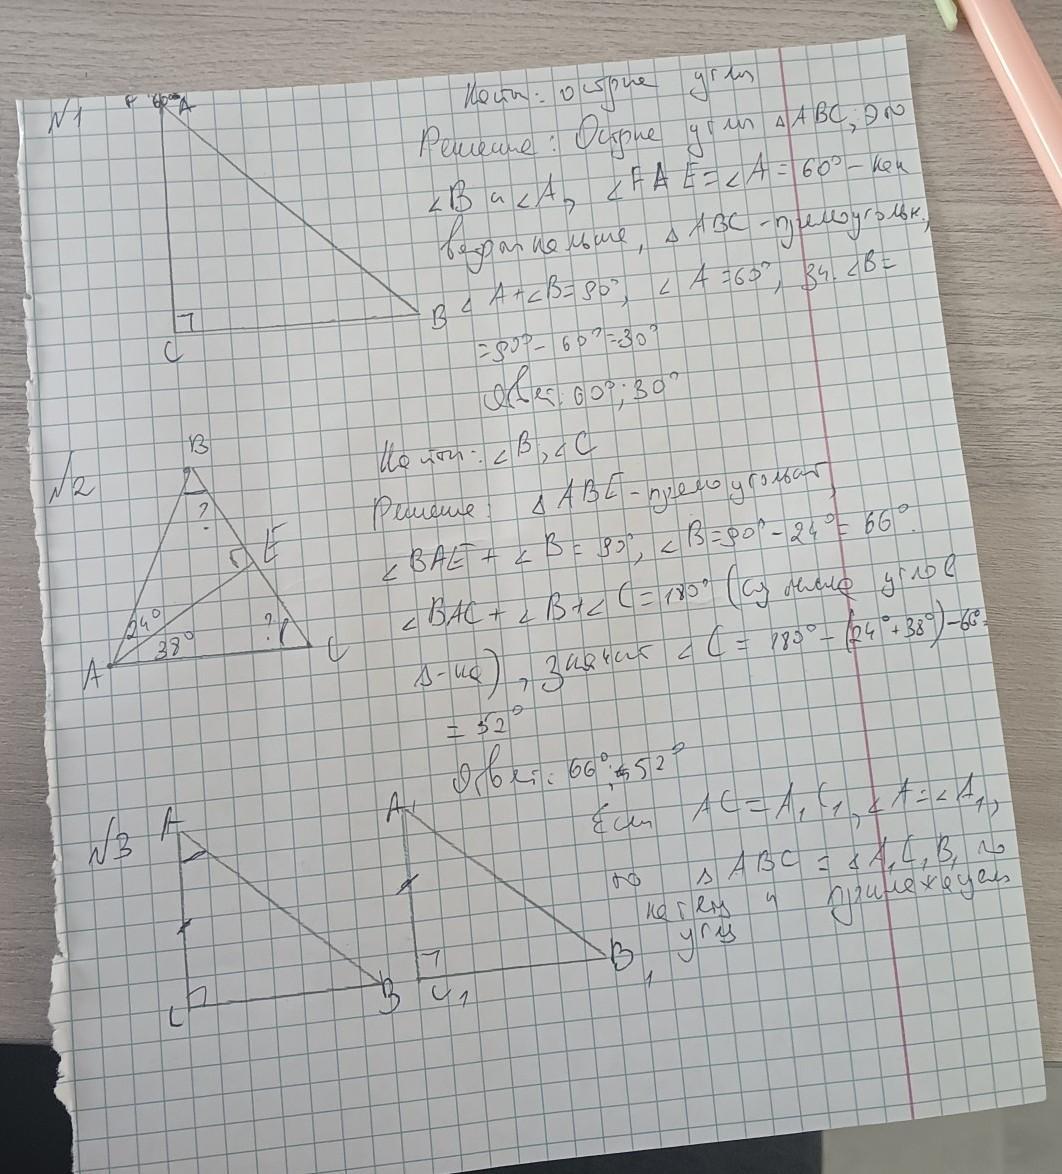 №1
60° A
C
B
Найти: острые углы
Решение: Острые углы △ABC, это
∠B и ∠A, ∠FAE=∠A=60° – как
вертикальные, △ABC - прямоугольн.,
∠A+∠B=90°, ∠A=60°, зн. ∠B=
=90°-60°=30°
Ответ: 60°; 30°
№2
B
?
E
24°
38°
?
A
C
Найти: ∠B, ∠C
Решение: △ABE - прямоугольн
∠BAE + ∠B = 90°, ∠B=90°-24°=66°.
∠BAC+∠B+∠C=180° (из суммы углов
△-ка), значит ∠C = 180°-(24°+38°)-66°=
= 52°
Ответ: 66°; 52°
№3
A
C
B
A1
C1
B1
Если AC=A1C1, ∠A=∠A1,
то △ABC = △A1C1B1 по
катету и прилежащем
углу